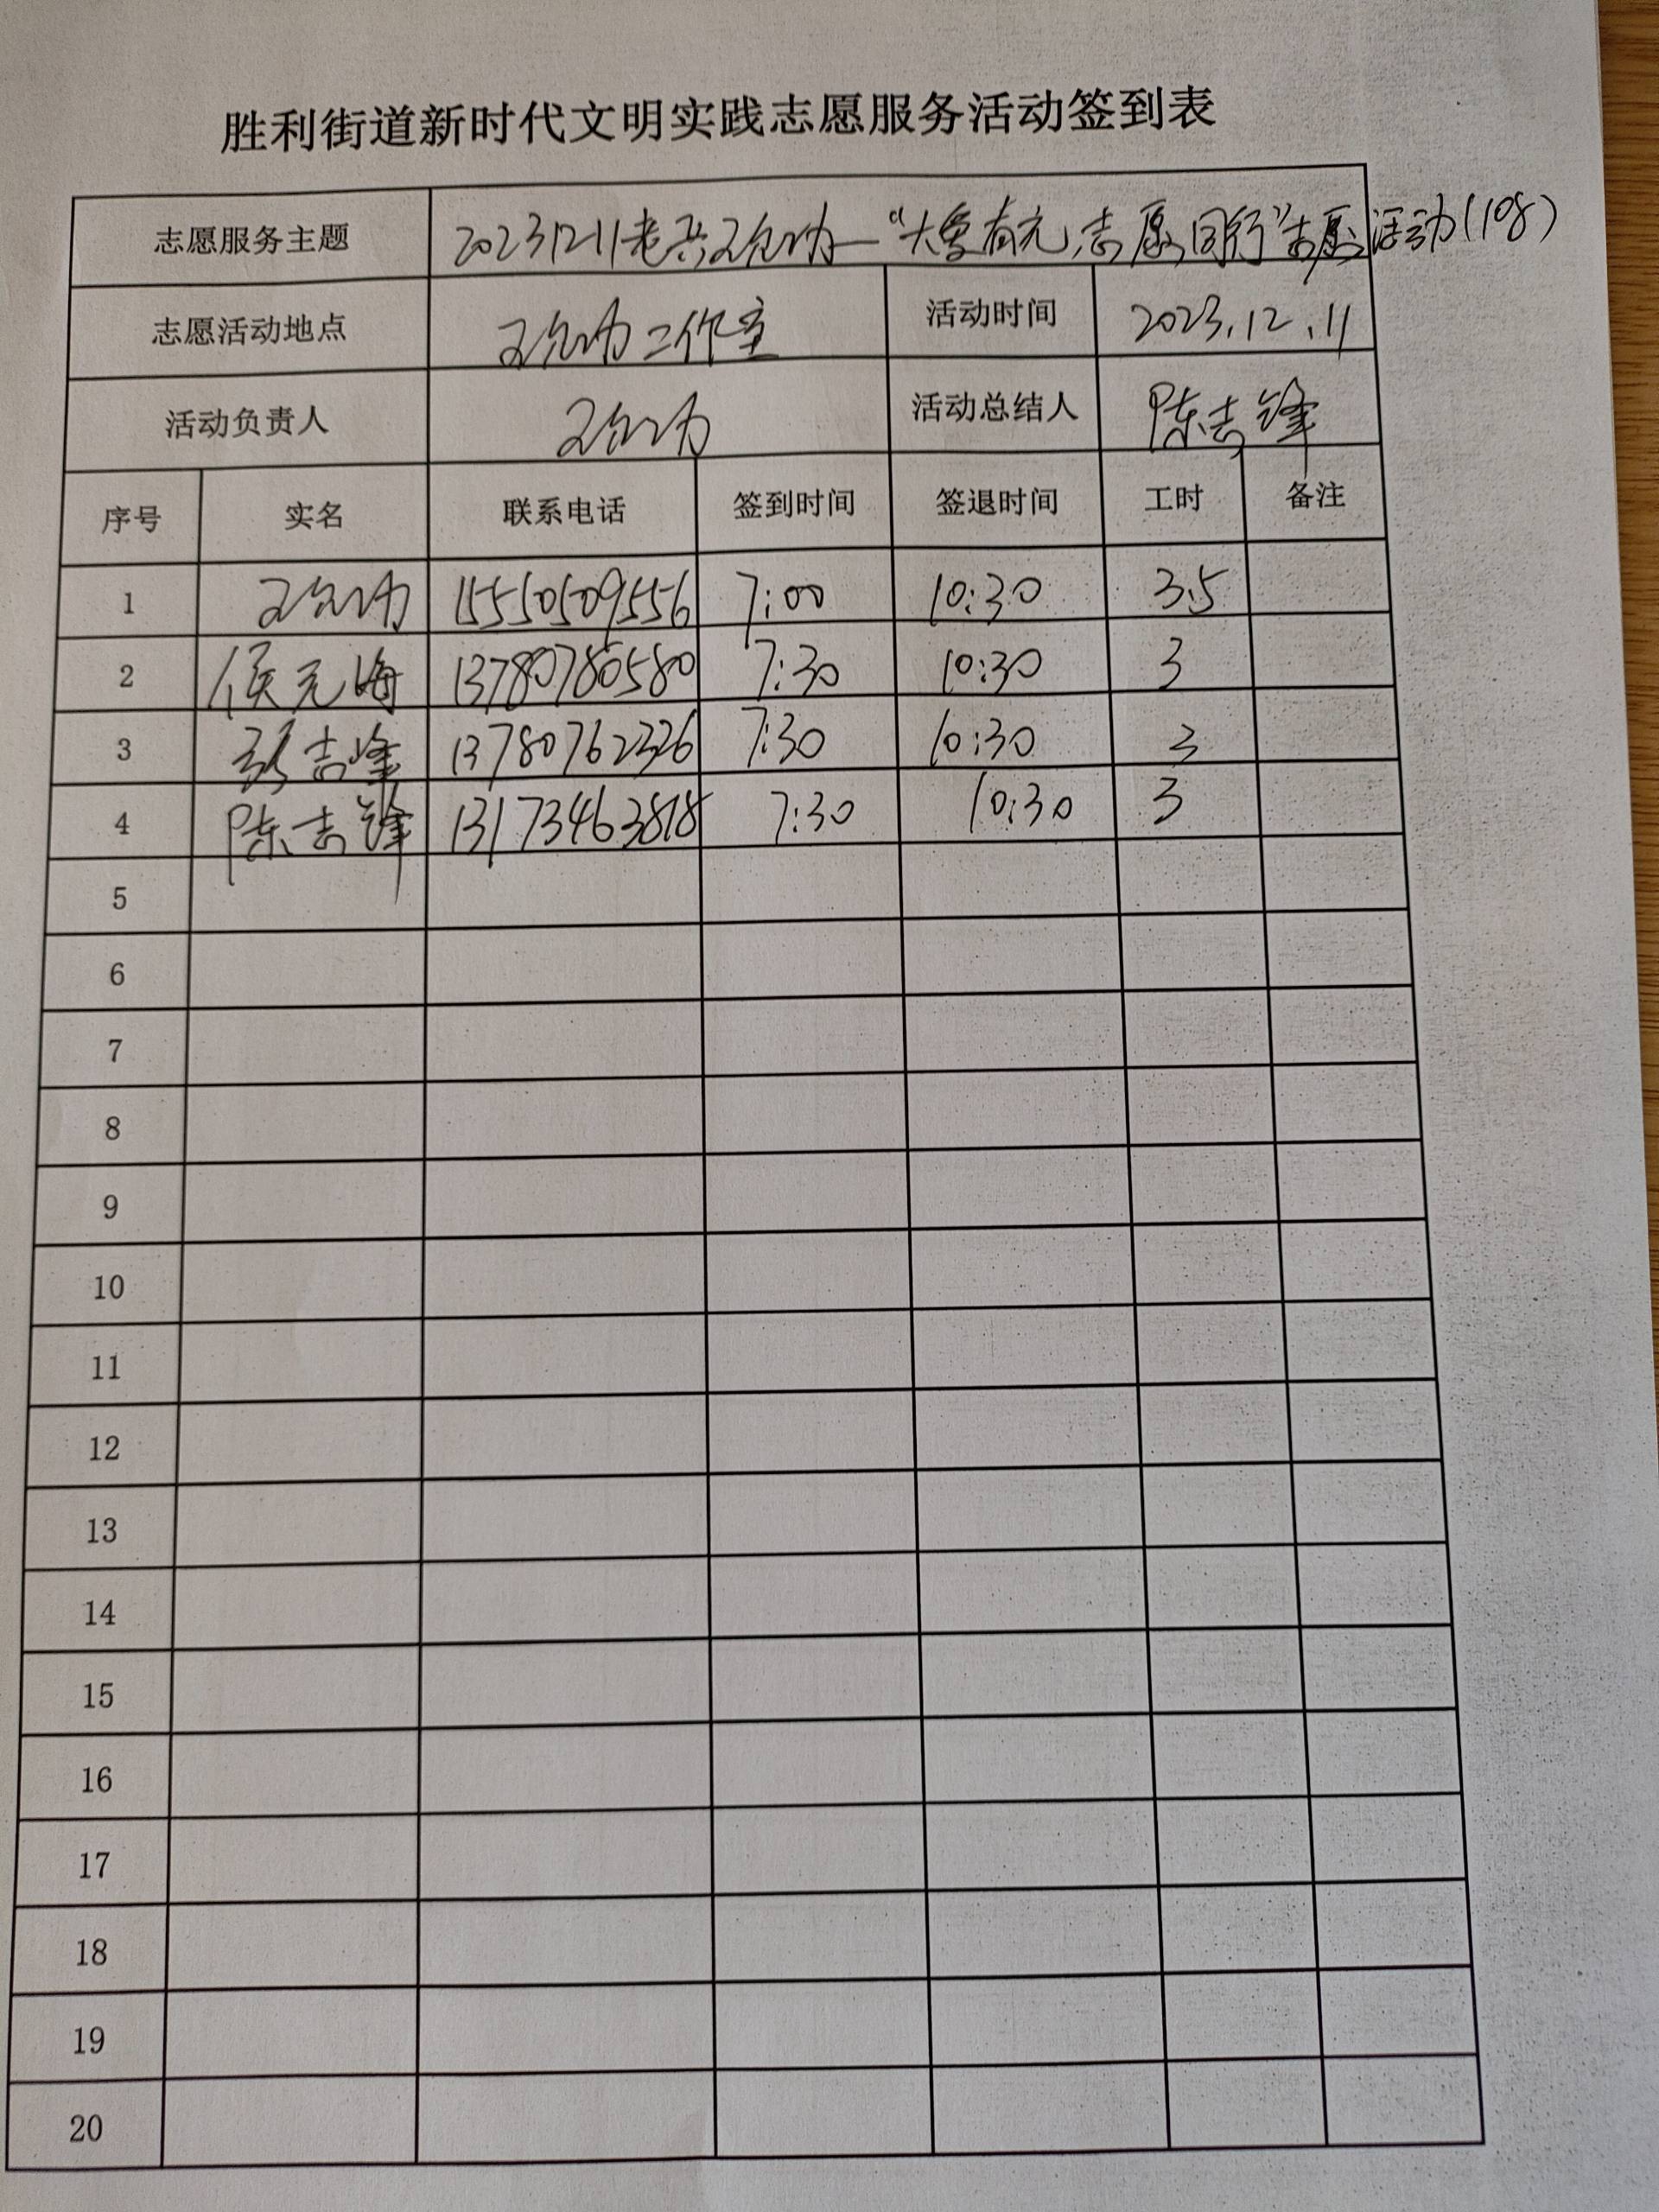 胜利街道新时代文明实践志愿服务活动签到表
志愿服务主题 20231211老兵 —“大爱有元,志愿同行”志愿活动(108)
志愿活动地点 工作室 活动时间 2023.12.11
活动负责人 活动总结人 陈志锋
序号 实名 联系电话 签到时间 签退时间 工时 备注
1 15550509556 7:00 10:30 3.5
2 侯元海 13780780580 7:30 10:30 3
3 志峰 13780762326 7:30 10:30 3
4 陈志锋 13173463818 7:30 10:30 3
5
6
7
8
9
10
11
12
13
14
15
16
17
18
19
20